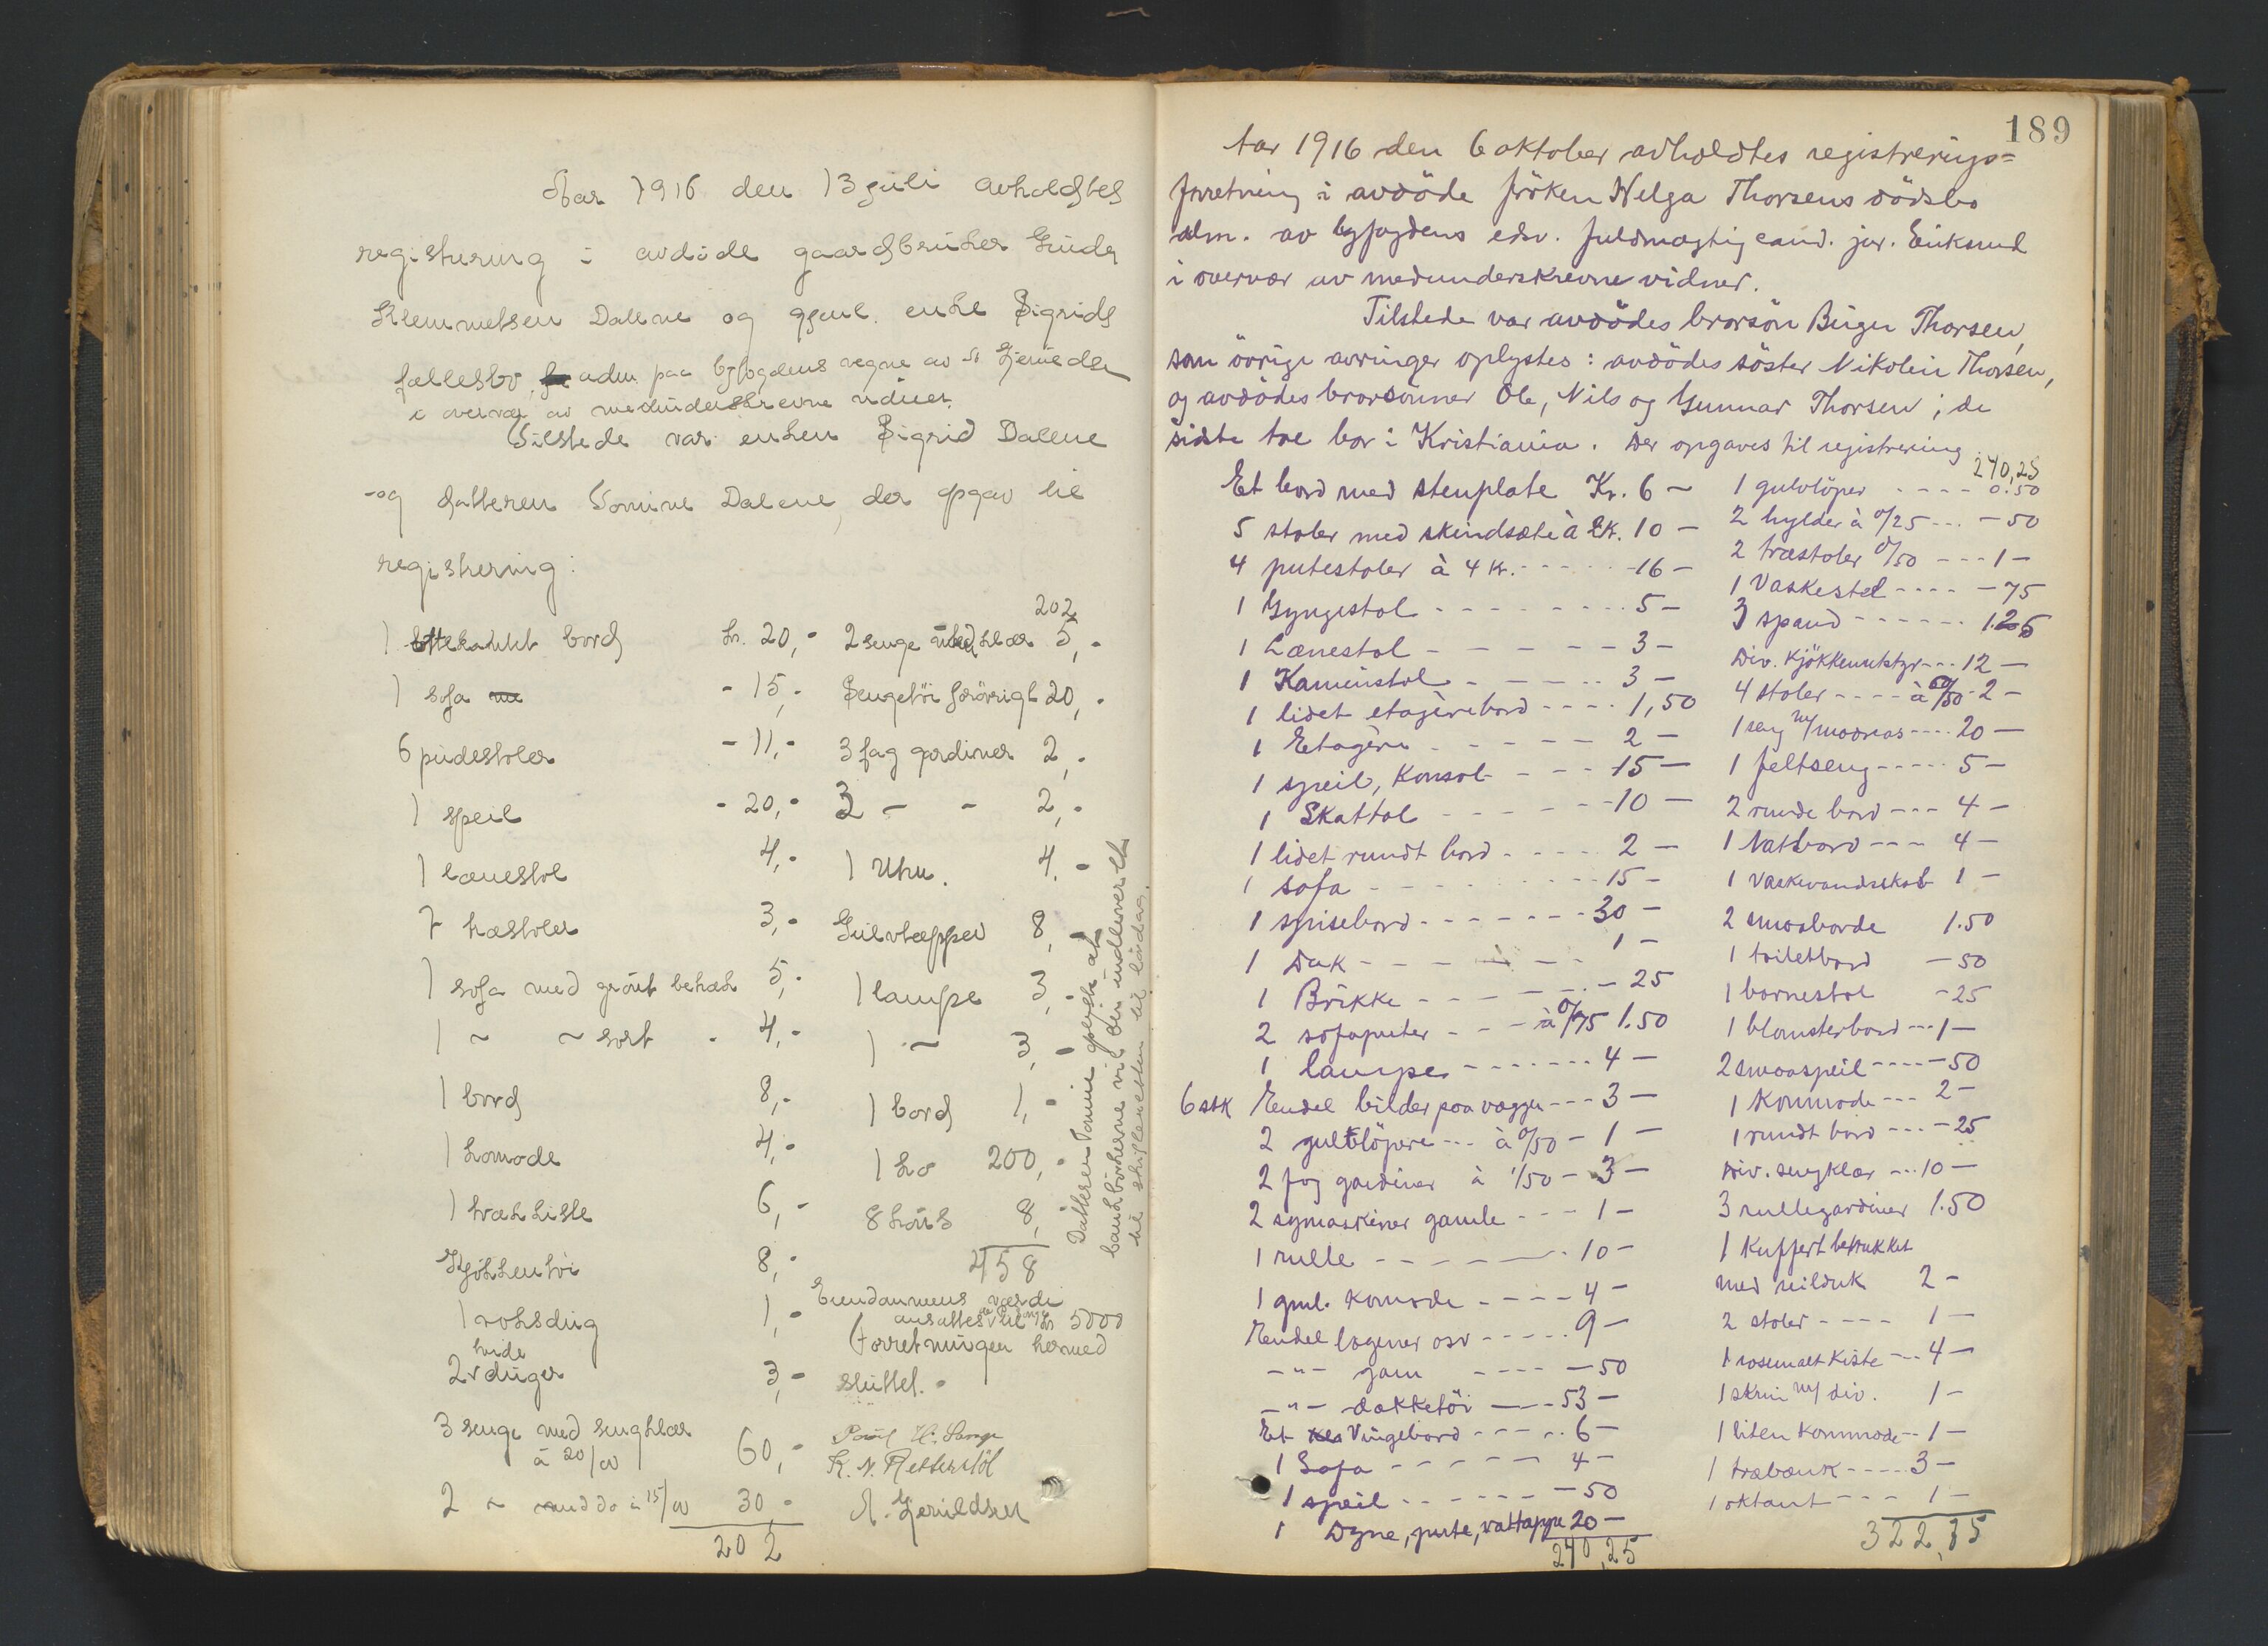 Aar 1916 den 13 juli avholdtes
registrering i avdöde gaardbruker
Klemmetsen Dalene og gjenl. enke Sigrids
fællesbo, adm. paa byfogdens vegne av
i overvær av medunderskrevne vidner.
Tilstede var enken Sigrid Dalene
og datteren Tomine Dalene, der opgav til
registrering:
1 ottekantet bord kr. 20,-
1 sofa - 15,-
6 pudestoler - 11,-
1 speil - 20,-
1 lænestol 4,-
7 træstoler 3,-
1 sofa med grönt betræk 5,-
1 ~ ~ sort - 4,-
1 bord 8,-
1 komode 4,-
1 trækiste 6,-
Kjökkentöi 8,-
1 voksdug 1,-
hvide
2 duger 3,-
3 senge med sengklær
à 20/00 60,-
2 ~ med do à 15/00 30,-
202
202
2 senge med klær 5,-
Sengetöi forövrigt 20,-
3 fag gardiner 2,-
3 - - 2,-
1 Uhr. 4,-
Gulvtepper 8,-
1 lampe 3,-
1 ~ 3,-
1 bord 1,-
1 ko 200,-
8 höns 8,-
458
Eiendommens værdi
ansattes til kr 5000
Forretningen hermed
sluttet.
K. N. Retterstöl
Datteren Tomine oplyste at
bankbökerne vil bli indleveret
til skifteretten til lördag.
189
Aar 1916 den 6 oktober avholdtes registrerings=
forretning i avdöde fröken Helga Thorsens dödsbo
adm. av byfogdens edsv. fuldmægtig cand. jur. Eiksund
i overvær av medunderskrevne vidner.
Tilstede var avdödes brorsön Birger Thorsen,
som övrige arvinger oplystes: avdödes söster Nikolin Thorsen,
og avdödes brorsönner Ole, Nils og Gunnar Thorsen; de
sidste to bor i Kristiania. Der opgaves til registrering
Et bord med stenplate Kr. 6 -
5 stoler med skindsæte à 2 k. 10 -
4 putestoler à 4 kr. - - - - - 16 -
1 Gyngestol - - - - - - - - 5 -
1 Lænestol - - - - - - 3 -
1 Kaminstol - - - - - 3 -
1 lidet etagèrebord - - - - 1,50
1 Etagère - - - - - - 2 -
1 speil, konsol - - - 15 -
1 Skattol - - - - - - 10 -
1 lidet rundt bord - - - - 2 -
1 sofa - - - - - - - - 15 -
1 spisebord - - - - - - - 30 -
1 Duk - - - - - - - 1 -
1 Brikke - - - - - - - 25
2 sofaputer - - - à 0/75 1.50
1 lampe - - - - - - - 4 -
6 stk Endel bilder paa vægge - - - 3 -
2 gulvlöpere - - - à 0/50 - 1 -
2 fag gardiner à 1/50 - 3 -
2 symaskiner gamle - - - 1 -
1 rulle - - - - - - 10 -
1 gml. komode - - - - 4 -
Endel lagener osv - - - - - 9 -
- " - garn - - - - - 50
- " - dækketöi - - - 53 -
Et Vingebord - - - - - 6 -
1 Sofa - - - - - - 4 -
1 speil - - - - - - - 50
1 Dyne, pute, vattæppe 20 -
240,25
240,25
1 gulvlöper - - - - 0.50
2 hylder à 0/25 - - - - 50
2 træstoler 0/50 - - - 1 -
1 Vaskestel - - - - - 75
3 spand - - - - - - 1.25
Div. kjökkenutstyr - - - 12 -
4 stoler - - - - à 0/50 - 2 -
1 seng m/ madras - - - - 20 -
1 feltseng - - - - - 5 -
2 runde bord - - - 4 -
1 Natbord - - - 4 -
1 Vaskevandsskab 1 -
2 smaaborde 1.50
1 toiletbord - 50
1 barnestol - 25
1 blomsterbord - - - 1 -
2 smaaspeil - - - - - 50
1 Kommode - - - 2 -
1 rundt bord - - - - 25
Div. sengklær - - - 10 -
3 rullegardiner 1.50
1 Kuffert betrukket
med seilduk 2 -
2 stoler - - - - 1 -
1 rosemalt kiste - - - 4 -
1 skrin m/ div. 1 -
1 liten kommode - - 1 -
1 træbænk - - - - 3 -
1 oktant - - - - 1 -
322,75